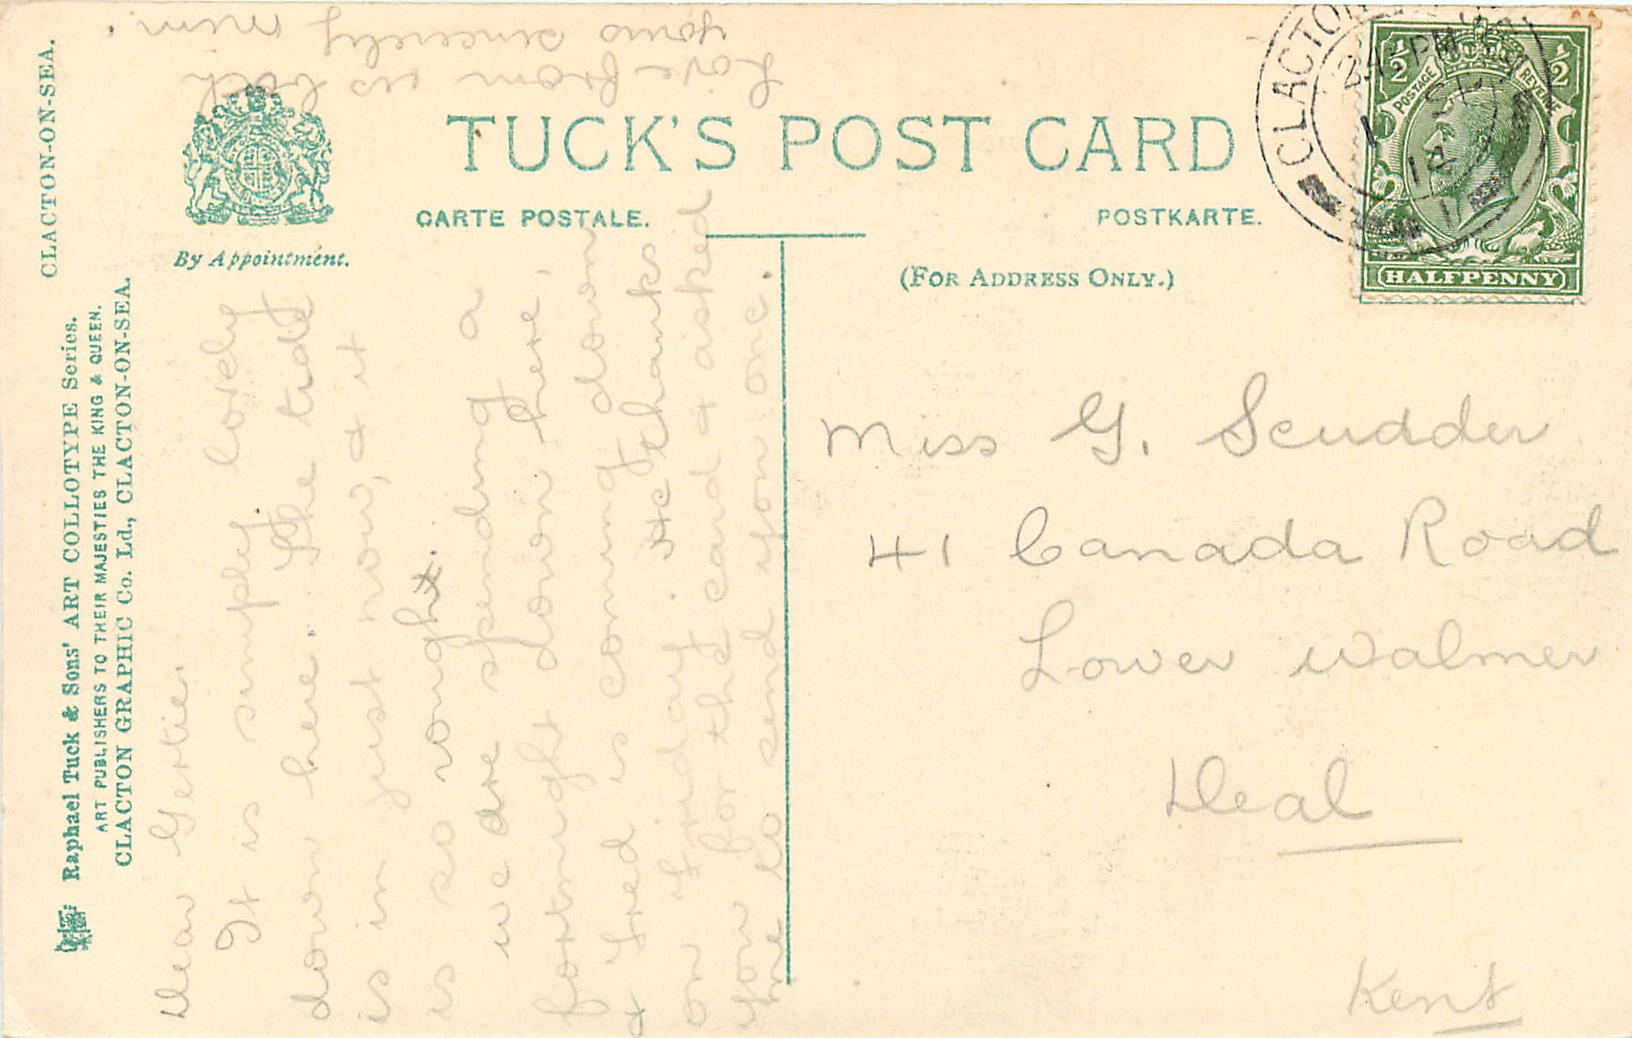 CLACTON-ON-SEA.
Raphael Tuck & Sons' ART COLLOTYPE Series.
ART PUBLISHERS TO THEIR MAJESTIES THE KING & QUEEN.
CLACTON GRAPHIC Co. Ld., CLACTON-ON-SEA.
By Appointment.
TUCK'S POST CARD
CARTE POSTALE.
POSTKARTE.
(FOR ADDRESS ONLY.)
CLACTON
PM
1 SP
12
½ ½
POSTAGE REVENUE
HALFPENNY
Dear Gertie.
It is simply lovely
down here. The tide
is in just now, & it
is so rough.
we are spending a
fortnight down here,
& Fred is coming down
on Friday. He thanks
you for the card & asked
me to send you one.
Love from us both
yours sincerely
Miss G. Scudder
41 Canada Road
Lower Walmer
Deal
Kent